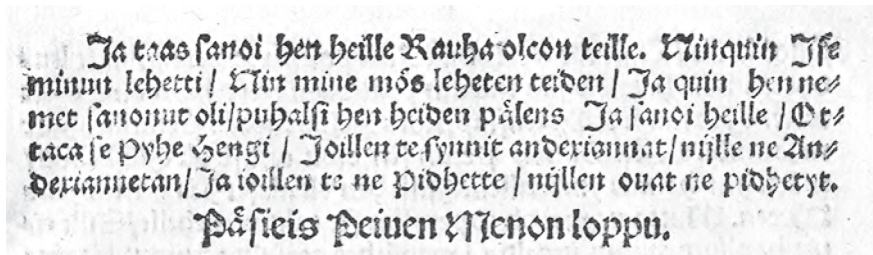 Ja taas sanoi hen heille Rauha olcon teille. Ninquin Ise
minun lehetti / Nin mine mös leheten teiden / Ja quin hen ne⸗
met sanonut oli / puhalsi hen heiden pälens Ja sanoi heille / Ot⸗
taca se Pyhe Hengi / Joillen te synnit andexiannat / nijlle ne An⸗
dexiannetan / Ja ioillen te ne Pidhette / nijllen ouat ne pidhetyt.
Päsieis Peiuen Menon loppu.